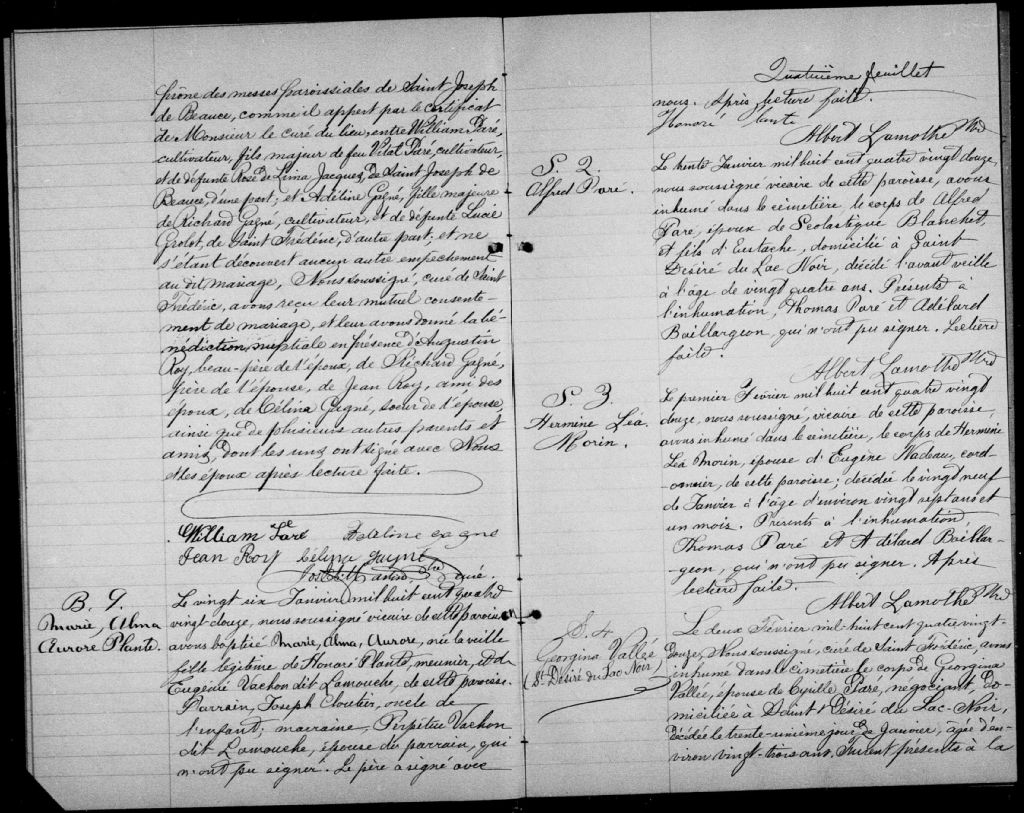 prône des messes paroissiales de Saint Joseph
de Beauce, comme il appert par le certificat
de Monsieur le curé du lieu, entre William Paré,
cultivateur, fils majeur de feu Vital Paré, cultivateur,
et de défunte Rose de Lima Jacques, de Saint Joseph de
Beauce, d'une part; et Adéline Gagné, fille majeure
de Richard Gagné, cultivateur, et de défunte Lucie
Grolot, de Saint Frédéric, d'autre part; et ne
s'étant découvert aucun autre empêchement
au dit mariage, Nous soussigné, curé de Saint
Frédéric, avons reçu leur mutuel consente-
ment de mariage, et leur avons donné la bé-
nédiction nuptiale en présence d'Augustin
Roy, beau-père de l'époux, de Richard Gagné,
père de l'épouse, de Jean Roy, ami des
époux, de Célina Gagné, soeur de l'épouse,
ainsi que de plusieurs autres parents et
amis, dont les uns ont signé avec Nous
et les époux après lecture faite.
William Paré
Jean Roy Célina
curé.
B. 9.
Marie, Alma
Aurore Plante.
Le vingt six Janvier mil huit cent quatre
vingt douze, nous soussigné vicaire de cette paroisse
avons baptisé Marie, Alma, Aurore, née la veille
fille légitime de Honoré Plante, meunier, et de
Eugénie Vachon dit Lamouche, de cette paroisse.
Parrain, Joseph Cloutier, oncle de
l'enfant; marraine, Perpétue Vachon
dit Lamouche, épouse du parrain, qui
n'ont pu signer. Le père a signé avec
Quatrième feuillet
nous. Après lecture faite.
Honoré Plante
Albert Lamothe Ptre
S. 2.
Alfred Paré.
Le trente Janvier mil huit cent quatre vingt douze,
nous soussigné vicaire de cette paroisse, avons
inhumé dans le cimetière, le corps de Alfred
Paré, époux de Scolastique Blanchet,
et fils d'Eustache, domicilié à Saint
Désiré du Lac Noir, décédé l'avant veille
à l'âge de vingt quatre ans. Présents à
l'inhumation, Thomas Paré et Adélard
Baillargeon, qui n'ont pu signer. Lecture
faite.
Albert Lamothe Ptre
S. 3.
Hermine Léa
Morin.
Le premier Février mil huit cent quatre vingt
douze, nous soussigné, vicaire de cette paroisse,
avons inhumé dans le cimetière, le corps de Hermine
Léa Morin, épouse d'Eugène Nadeau, cord-
onnier, de cette paroisse; décédée le vingt neuf
de Janvier à l'âge d'environ vingt sept ans et
un mois. Présents à l'inhumation,
Thomas Paré et Adélard Baillar-
geon, qui n'ont pu signer. Après
lecture faite.
Albert Lamothe Ptre
S. 4
Georgina Vallée
(St Désiré du Lac Noir)
Le deux Février mil-huit cent quatre vingt-
douze, Nous soussigné, curé de Saint Frédéric, avons
inhumé dans le cimetière le corps de Georgina
Vallée, épouse de Cyrille Paré, négociant, do-
miciliée à Saint Désiré du Lac-Noir,
décédée le trente-unième jour de Janvier, âgée d'en-
viron vingt-trois ans. Furent présents à la